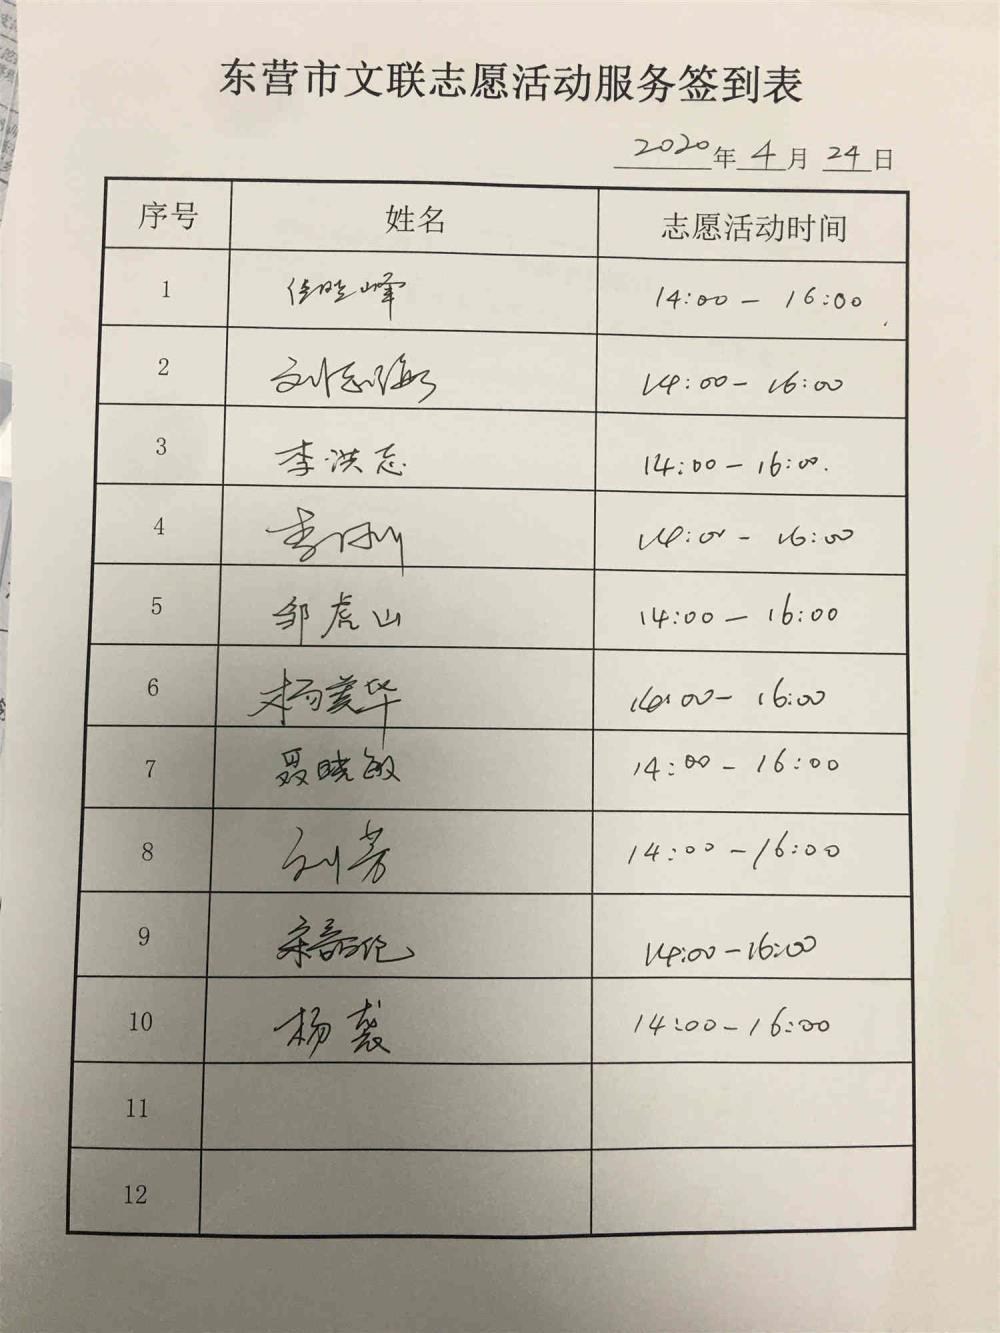 东营市文联志愿活动服务签到表
2020年 4 月 24 日
序号 姓名 志愿活动时间
1 任晓峰 14:00 - 16:00
2 刘志 14:00 - 16:00
3 李洪志 14:00 - 16:00.
4 李 14:00 - 16:00
5 邹虎山 14:00 - 16:00
6 杨美华 14:00 - 16:00
7 聂晓敏 14:00 - 16:00
8 刘芳 14:00 - 16:00
9 14:00 - 16:00
10 杨 14:00 - 16:00
11
12